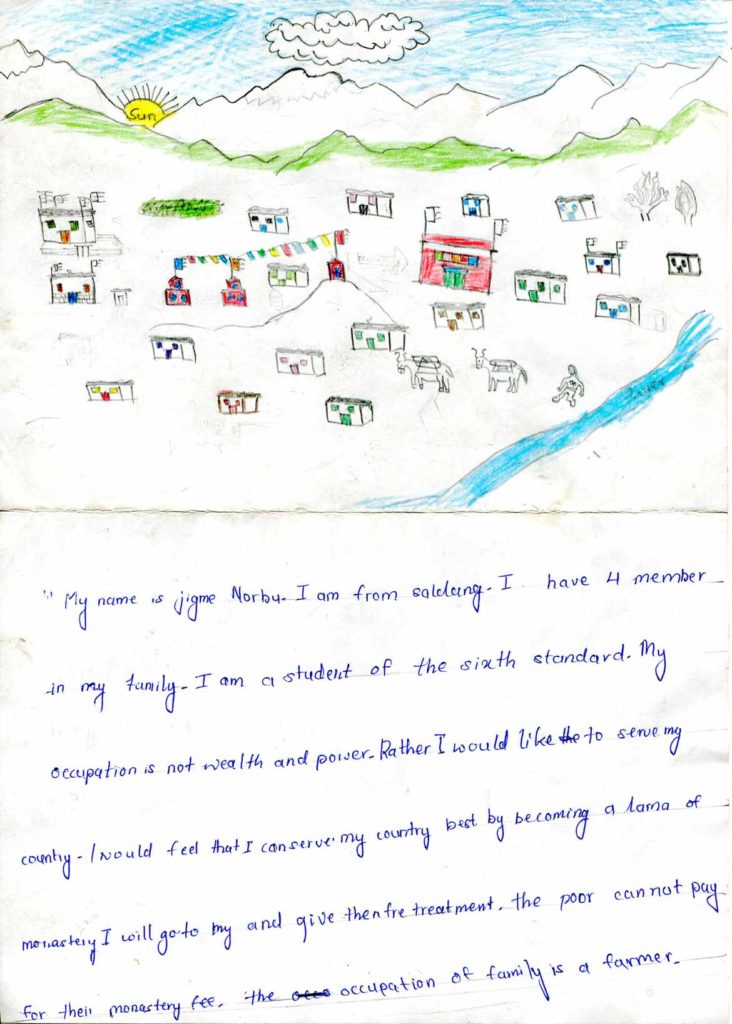 Sun
River
" My name is jigme Norbu. I am from saldang. I have 4 member
in my family. I am a student of the sixth standard. My
occupation is not wealth and power. Rather I would like to serve my
country. I would feel that I can serve my country best by becoming a lama of
monastery I will go to my and give then fre treatment. the poor cannot pay
for their monastery fee. the occupation of family is a farmer.